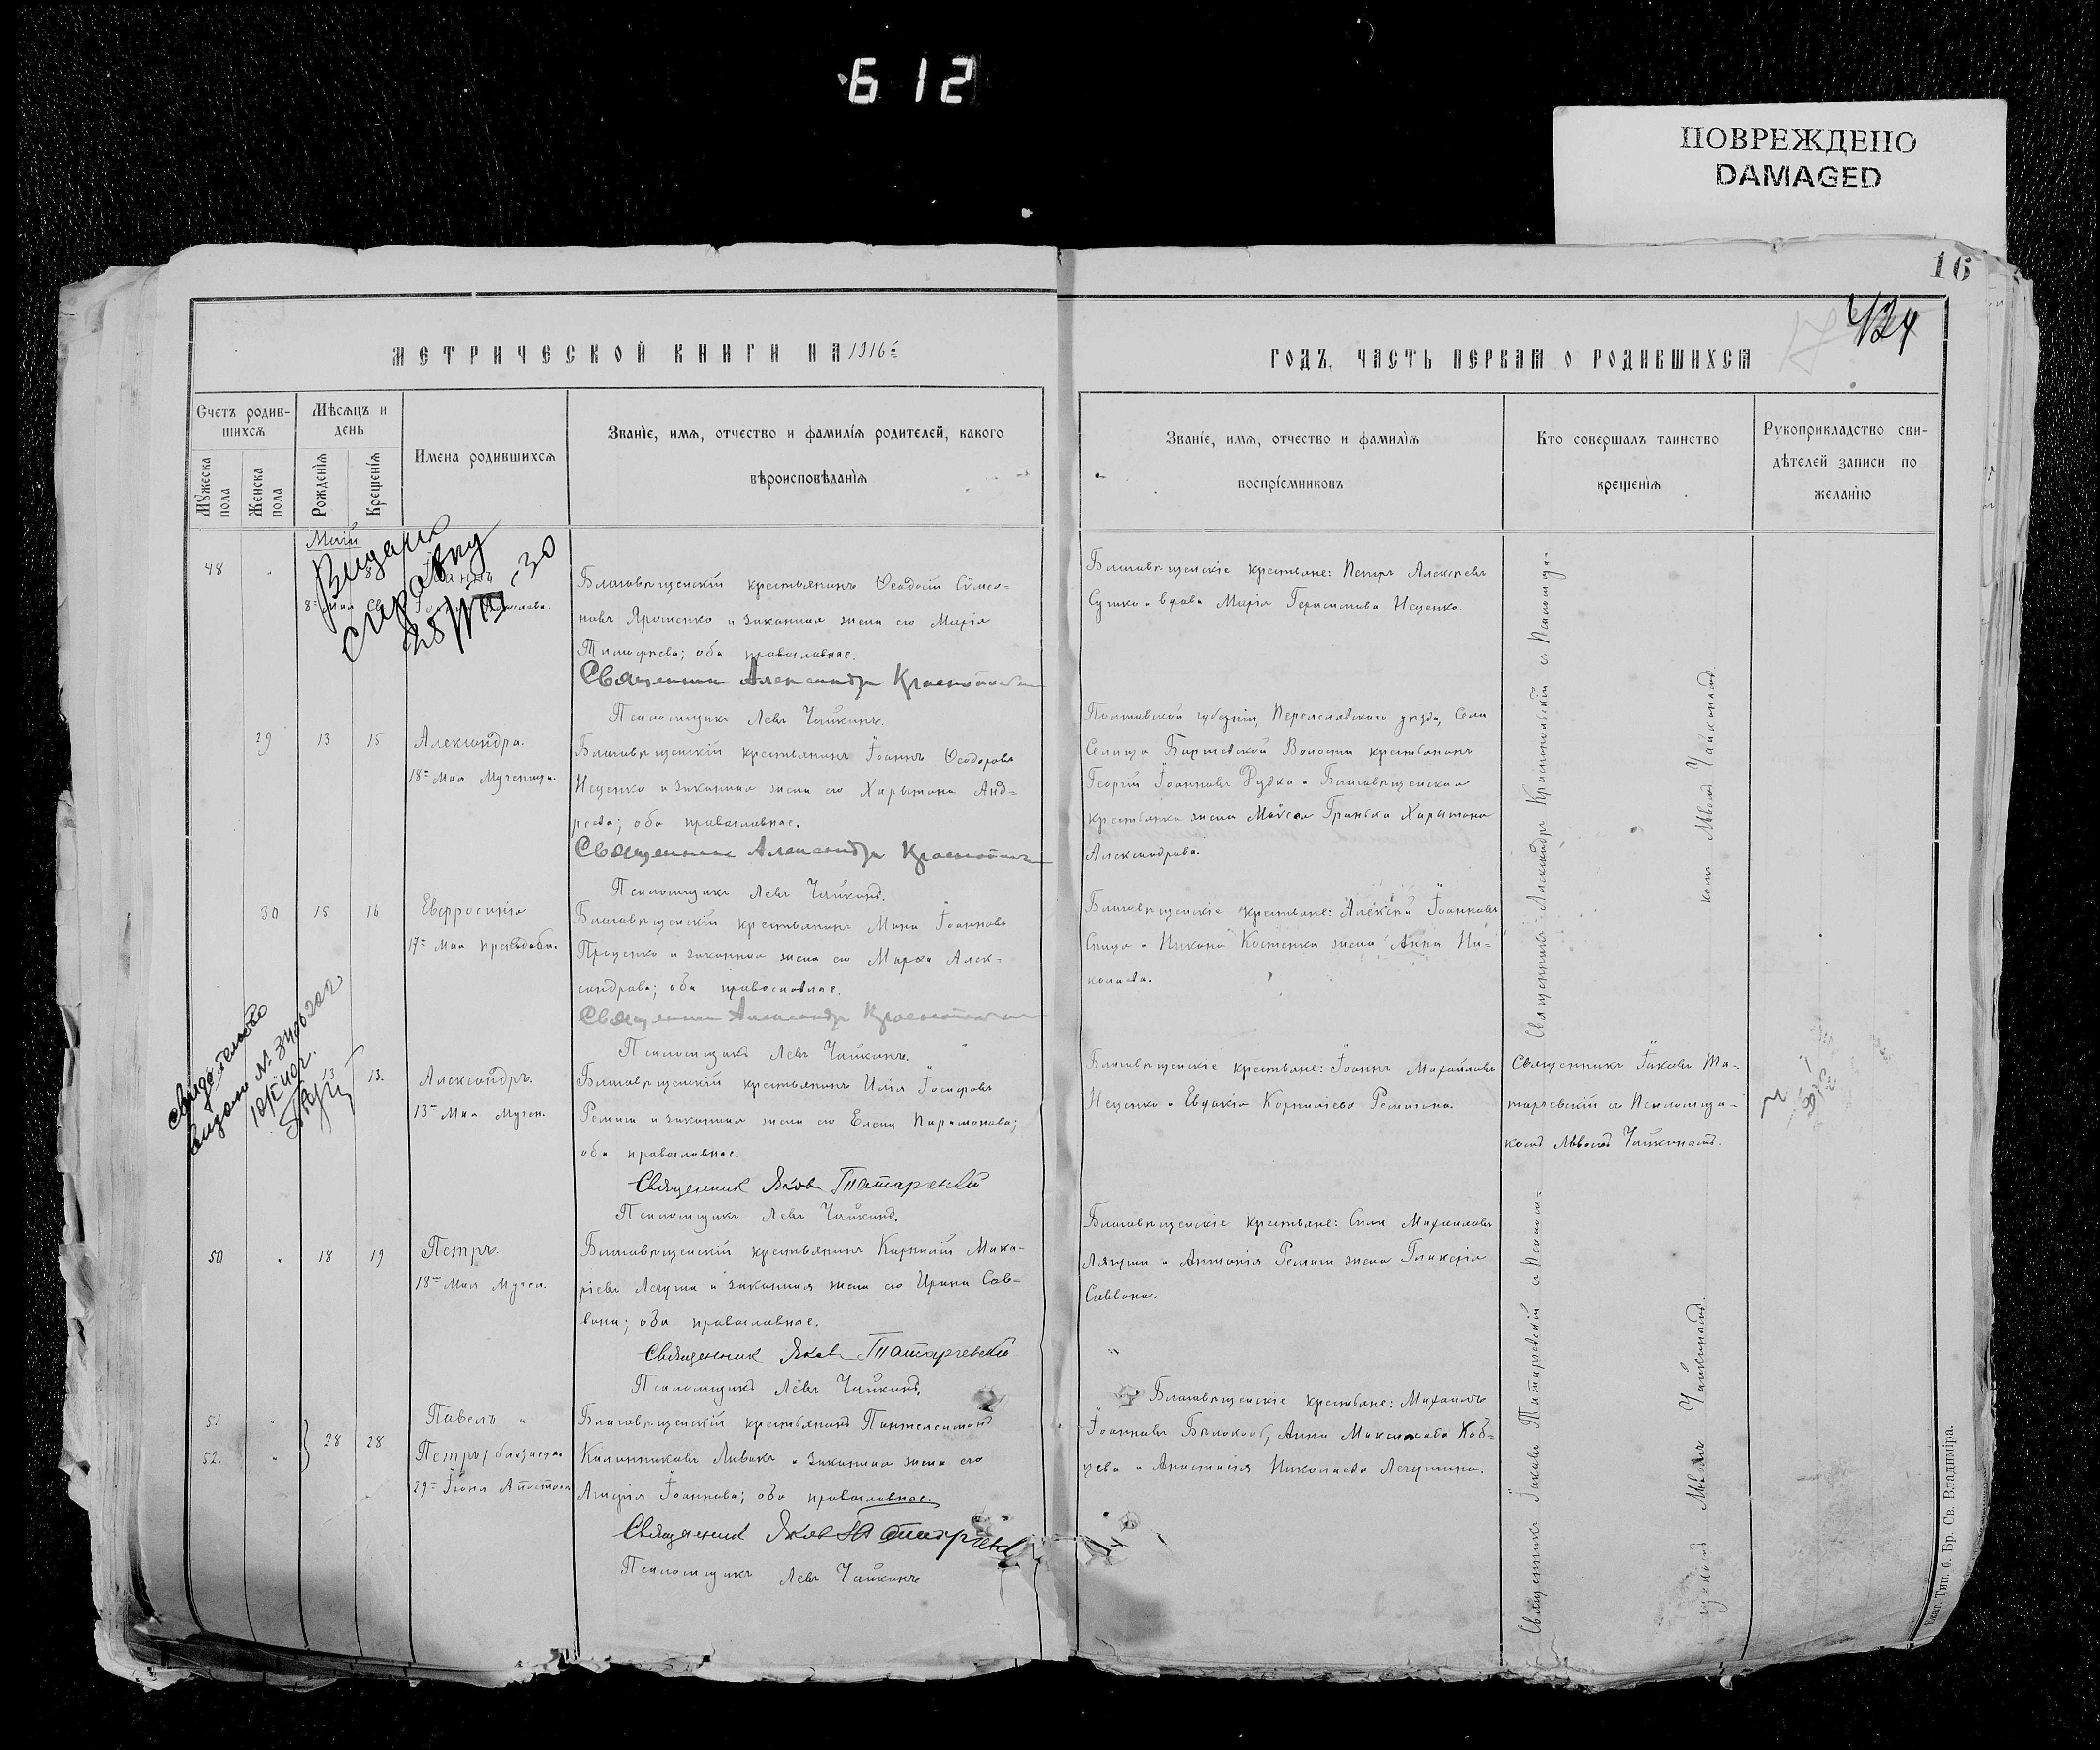 612
ПОВРЕЖДЕНО
DAMAGED
16
424
МЕТРИЧЕСКОЙ КНИГИ НА 1916 г
ГОДЪ, ЧАСТЬ ПЕРВАЯ О РОДИВШИХСЯ
Счетъ родив-
шихся
Мужеска пола
Женска пола
Мѣсяцъ и
день
Рожденія
Крещенія
Имена родившихся
Званіе, имя, отчество и фамилія родителей, какого
вѣроисповѣданія
Званіе, имя, отчество и фамилія
воспріемниковъ
Кто совершалъ таинство
крещенія
Рукоприкладство сви-
дѣтелей записи по
желанію
Май
Видана
справку
48 "
8 Мая
Благовѣщенскій крестьянинъ Ѳеодосій Сѵмео-
новъ Ярошенко и законная жена его Марія
Тимоѳеева; оба православные.
Священникъ Александръ
Псаломщикъ Левъ Чайкинъ.
Благовѣщенскіе крестьяне: Петръ Алексѣевъ
и вдова Марія Герасимова Ищенко.
29 13 15 Александра.
18го Мая Мученица.
Благовѣщенскій крестьянинъ Іоаннъ Ѳеодоровъ
Ищенко и законная жена его Харитина Анд-
реева; оба православные.
Священникъ Александръ
Псаломщикъ Левъ Чайкинъ.
Полтавской губерніи, Переяславского уѣзда, Села
Селища Волости крестьянинъ
Георгій Іоанновъ Рудко и Благовѣщенская
крестьянка жена Моисея Гринька Харитина
Александрова.
30 15 16 Евфросинія
17го Мая
Благовѣщенскій крестьянинъ Мина Іоанновъ
Проценко и законная жена его Марѳа Алек-
сандрова; оба православные.
Священникъ Александръ
Псаломщикъ Левъ Чайкинъ.
Благовѣщенскіе крестьяне: Алексѣй Іоанновъ
Спица и Никона Костенка жена Анна Ни-
колаева.
Священникъ Александръ съ Псаломщи-
комъ Львомъ Чайкинымъ.
Свидетельство
видано №
13 13. Александръ.
13го Мая Мучен.
Благовѣщенскій крестьянинъ Илія Іосифовъ
Ремига и законная жена его Елена Парамонова;
оба православные.
Священник Яков Татарчевский
Псаломщикъ Левъ Чайкинъ.
Благовѣщенскіе крестьяне: Іоаннъ Михайловъ
Ищенко и Евдокія Корниліева Ремигина.
Священникъ Іаковъ Та-
тарчевскій съ Псаломщи-
комъ Львомъ Чайкинымъ.
50 " 18 19 Петръ.
18го Мая Мучен.
Благовѣщенскій крестьянинъ Корнилій Мака-
ріевъ Лягуша и законная жена его Ирина Сав-
вина; оба православные.
Священник Яков Татарчевский
Псаломщикъ Левъ Чайкинъ.
Благовѣщенскіе крестьяне: Сила Михайловъ
Лягуша и Антонія Ремиги жена Гликерія
Саввина.
51 "
52. "
28 28
Павелъ "
Петръ / близнецы
29го Іюня Апостола
Благовѣщенскій крестьянинъ Пантелеимонъ
Каллиниковъ Ливакъ и законная жена его
Агафія Іоаннова; оба православные.
Священник Яков Татарчевский
Псаломщикъ Левъ Чайкинъ
Благовѣщенскіе крестьяне: Михаилъ
Іоанновъ Бѣлоконь, Анна Максимова Коб-
цева и Анастасія Николаева Лягушина.
Священникъ Іаковъ Татарчевскій съ Псалом-
щикомъ Львомъ Чайкинымъ.
Екат. Тип. б. Бр. Св. Владиміра.